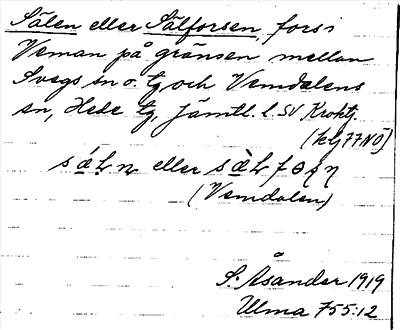 Sälen eller Sälforsen, fors i
Veman på gränsen mellan
Svegs sn o. tg och Vemdalens
sn, Hede tg, Jämtl. l. SV Kroktj.
77 NO)
eller
(Vemdalen)
S. Åsander 1919
Ulma 755:12